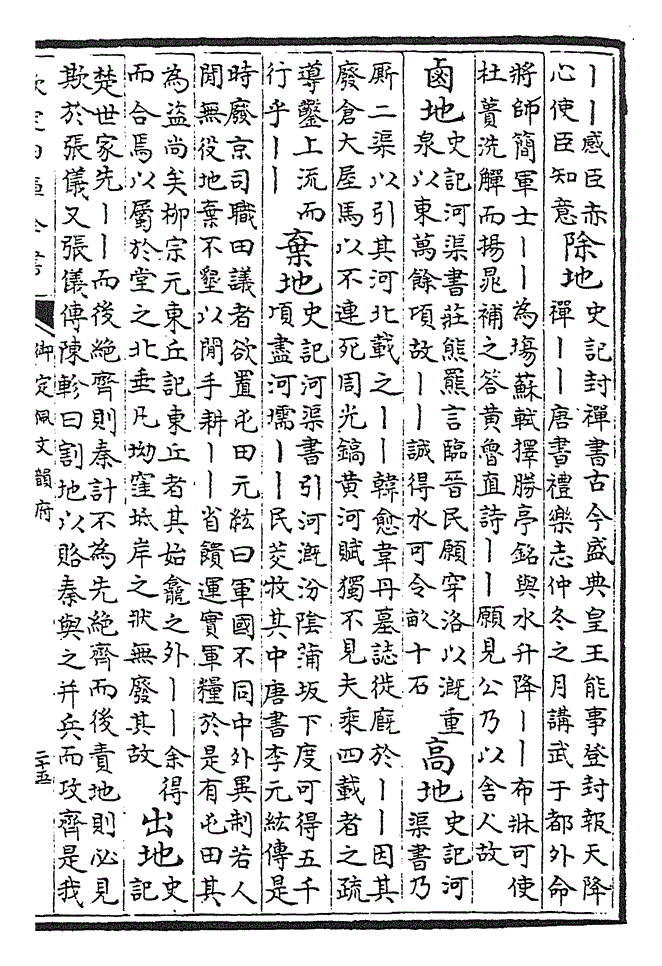 丨丨感臣赤
心使臣知意
除地
史記封禪書古今盛典皇王能事登封報天降
禪丨丨唐書禮樂志仲冬之月講武于都外命
將師簡軍士丨丨為塲蘇軾擇勝亭銘與水升降丨丨布牀可使
杜蕢洗觶而揚晁補之答黄魯直詩丨丨願見公乃以舍人故
鹵地
史記河渠書莊熊羆言臨晉民願穿洛以漑重
泉以東萬餘項故丨丨誠得水可令畝十石
高地
史記河
渠書乃
厮二渠以引其河北載之丨丨韓愈韋丹墓誌徙廐於丨丨因其
廢倉大屋馬以不連死周光鎬黄河賦獨不見夫乘四載者之疏
導鑿上流而
行乎丨丨
棄地
史記河渠書引河漑汾隂蒲坂下度可得五千
項盡河壖丨丨民茭牧其中唐書李元紘傳是
時廢京司職田議者欲置屯田元紘曰軍國不同中外異制若人
閒無役地棄不墾以閒手耕丨丨省饋運實軍糧於是有屯田其
為盗尚矣柳宗元東丘記東丘者其始龕之外丨丨余得
而合焉以屬於堂之北垂凡坳窪坻岸之狀無廢其故
出地
史
記
楚世家先丨丨而後絶齊則秦計不為先絶齊而後責地則必見
欺於張儀又張儀傳陳軫曰割地以賂秦與之并兵而攻齊是我
欽定四庫全書
御定佩文韻府
二十五